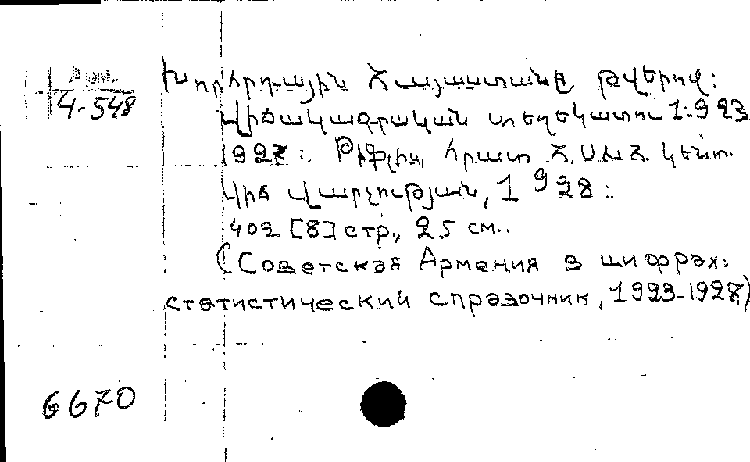 4-548
Խորհրդային Հայաստանը թվերով:
Վիճակագրական տեղեկատու 1923
1927: Թիֆլիս, հրատ Հ.Ս.Խ.Հ. կենտ.
վիճ վարչության, 1928:
402 [8] стр., 25 см.
(Советская Армения в цифрах:
статистический справочник, 1923-1927)
6670